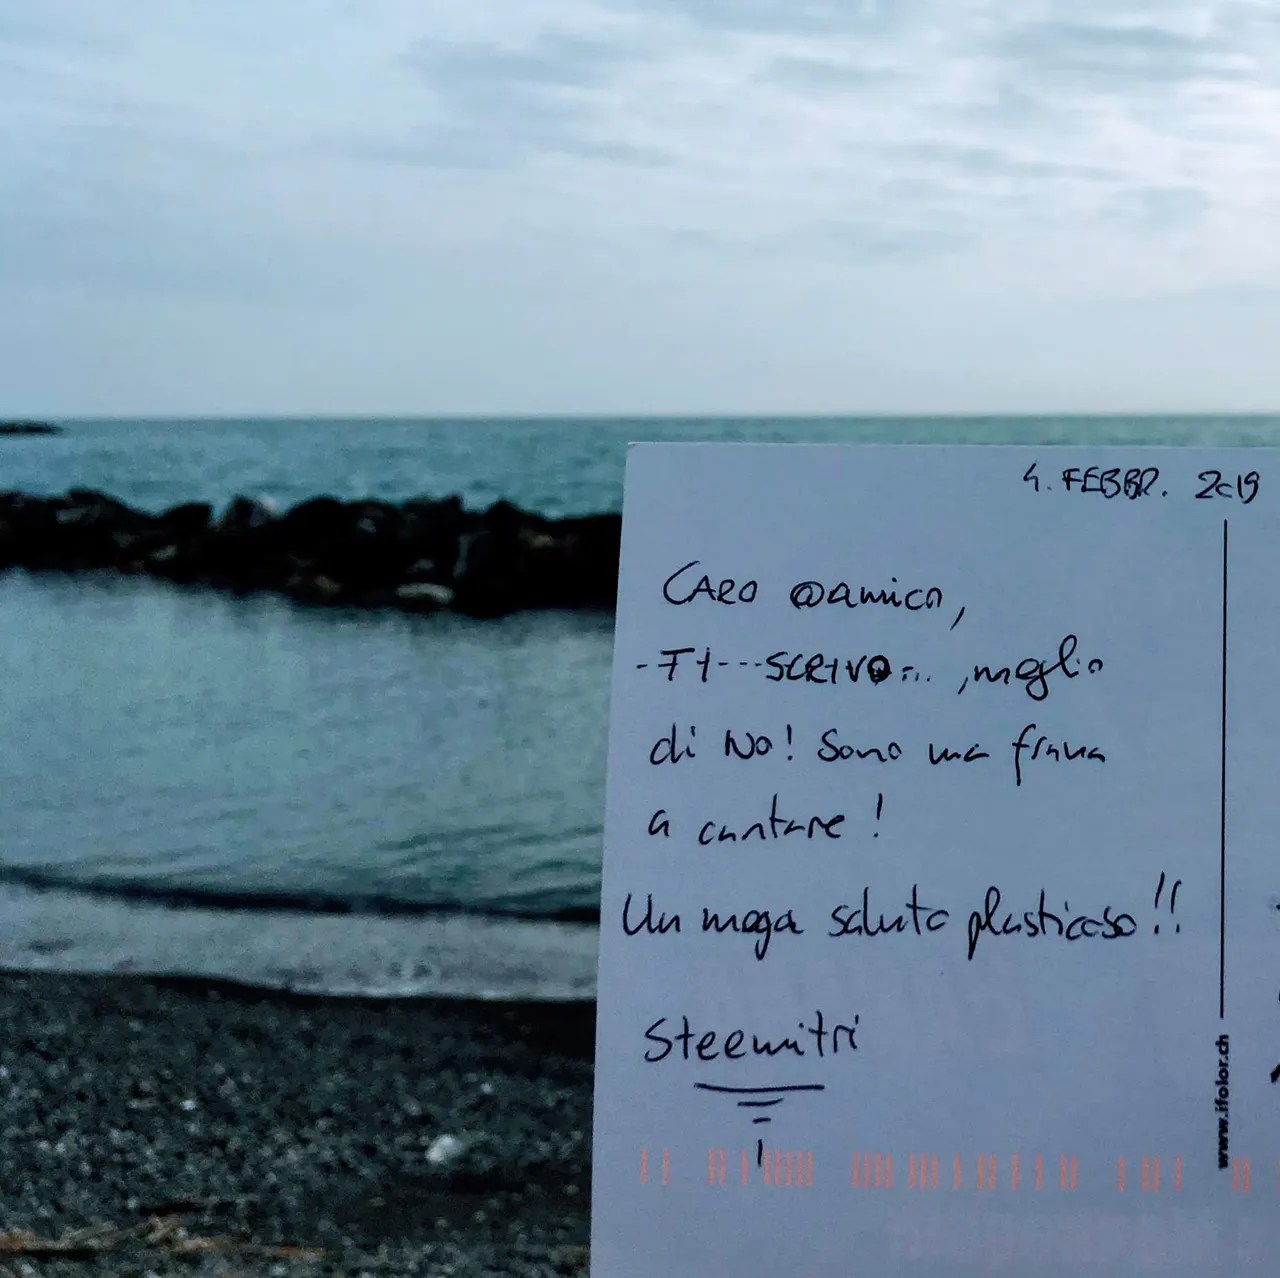 4. FEBBR. 2019
CARO @amico,
-TI---SCRIVO... , meglio
di NO! Sono una frana
a cantare!
Un mega saluto plasticoso!!
Steemitri
www.ifolor.ch